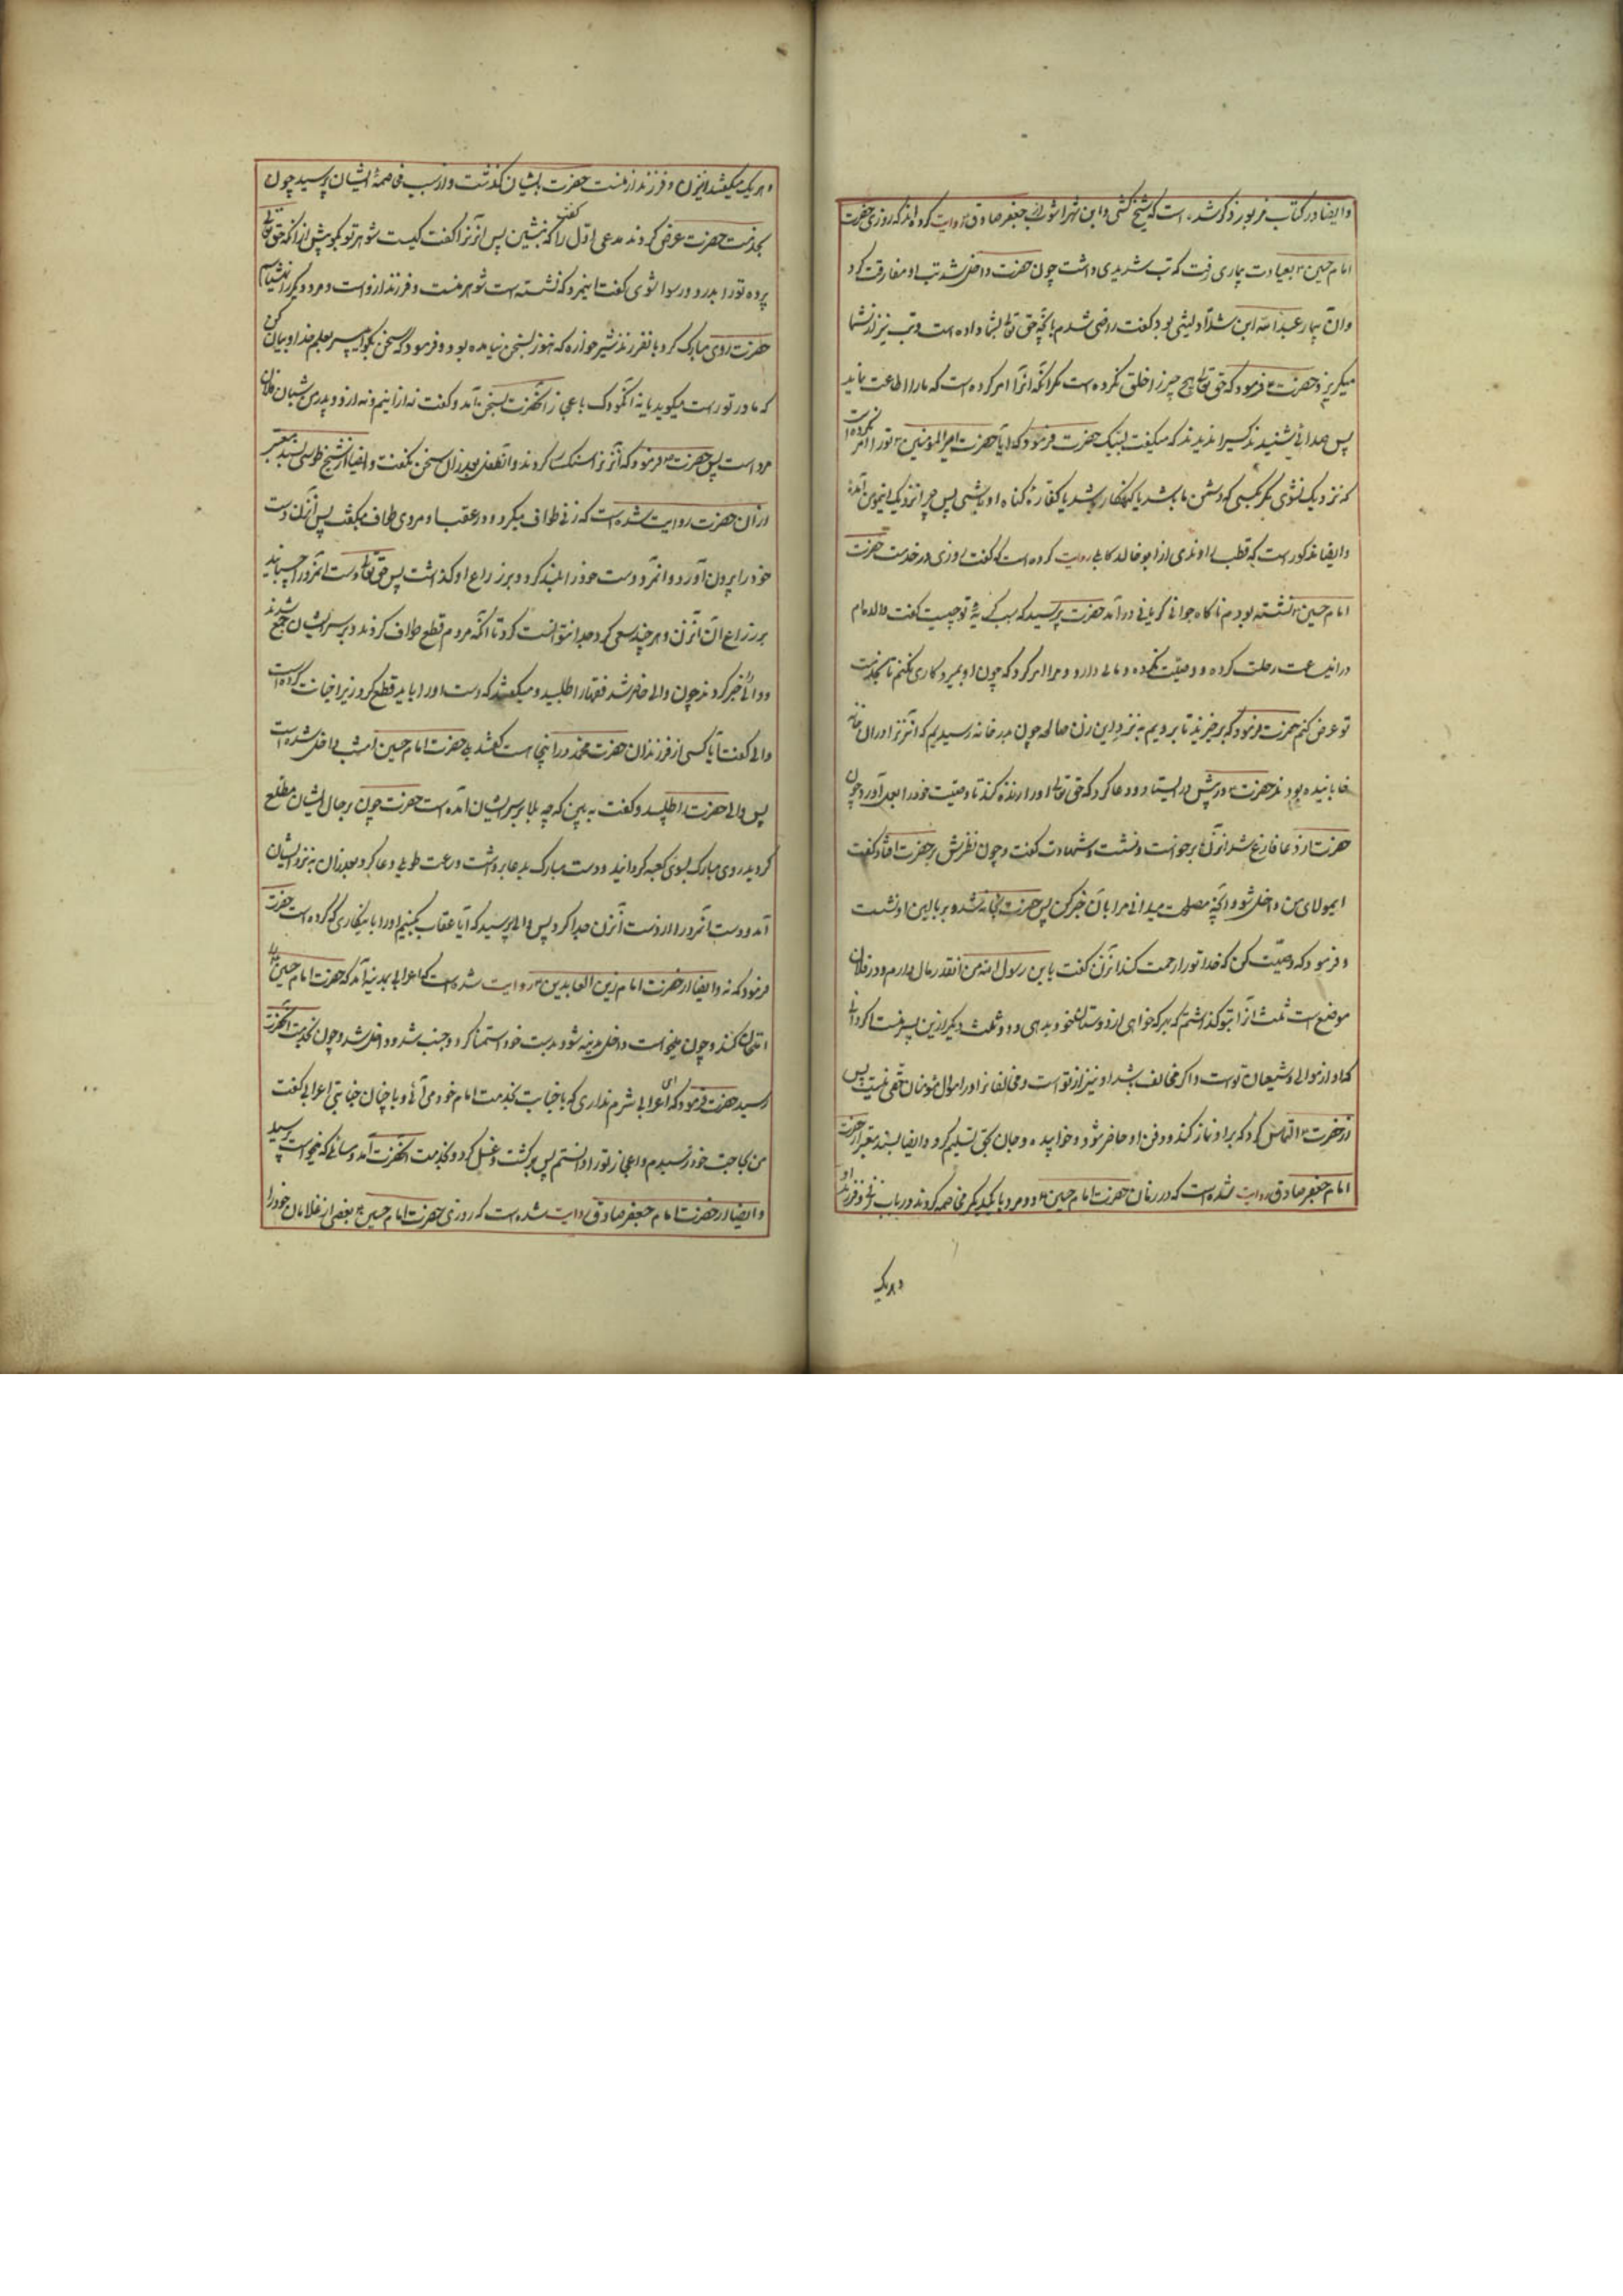 وایضا در کتاب مزبور ذکر شده است که شیخ کشی و ابن شهراشوب از جعفر صادق ع روایت کرده اند که روزی حضرت
امام حسین ع بعیادت بیماری رفت که تب شدیدی داشت چون حضرت داخل شد تب او مفارقت کرد
وآن بیمار عبد الله ابن شداد لیثی بود گفت راضی شدم بآنچه حق تعالی بشما داده است و تب نیز از شما
میگریزد حضرت ع فرمود که حق تعالی هیچ چیز را خلق نکرده است مگر آنکه آنرا امر کرده است که ما را اطاعت نماید
پس صدائی شنیدند و کسیرا ندیدند که میگفت لبیک حضرت فرمود که آیا حضرت امیر المؤمنین ع تورا امر نکرده است
که نزدیک نشوی مگر بکسی که دشمن ما باشد یا گنهکار باشد یا کفاره گناه او باشی پس چرا نزدیک اینمؤمن آمدهٔ
وایضا مذکور است که قطب راوندی از ابو خالد کابلی روایت کرده است که گفت روزی در خدمت حضرت
امام حسین ع نشسته بودم ناگاه جوانی گریان در آمد حضرت پرسید که سبب گریهٔ تو چیست گفت والده‌ام
در اینساعت رحلت کرده و وصیت نکرده و مالی دارد و مرا امر کرد که چون او بمیرد کاری نکنم تا بخدمت
تو عرض کنم حضرت فرمود که برخیزید تا برویم به نزد این زن صالحه چون بدر خانه رسیدیم که آنزنرا در آن خانه
خوابانیده بودند حضرت ع در پیش در ایستاد و دعا کرد که حق تعالی او را زنده کند تا وصیت خود را بعمل آورد چون
حضرت از دعا فارغ شد آنزن برخواست و نشست و شهادت گفت و چون نظرش بر حضرت افتاد گفت
ایمولای من داخل شو و آنچه مصلحت میدانی مرا بآن خبر کن پس حضرت بخانه شد و بر بالین او نشست
و فرمود که وصیت کن که خدا تو را رحمت کند آنزن گفت یا بن رسول الله من اینقدر مال دارم و در فلان
موضع است ثلث آنرا بتو گذاشتم که بهر که خواهی از دوستان خود بدهی و دو ثلث دیگر از این پسر منست اگر دانی
که او از موالی و شیعیان توست و اگر مخالف باشد او نیز از تو است و مخالفانرا در اموال مؤمنان حقی نیست پس
از حضرت ع التماس کرد که بر او نماز کند و در دفن او حاضر شود و خوابید و جان بحق تسلیم کرد وایضا بسند معتبر از حضرت
امام جعفر صادق روایت شده است که در زمان حضرت امام حسین ع دو مرد با یکدیگر مخاصمه کردند در باب زنی و فرزند او
و هر یک
و هر یک میگفتند اینزن و فرزند از منست حضرت بایشان گذشت و از سبب مخاصمهٔ ایشان پرسید چون
بخدمت حضرت عرض کردند مدعی اول را گفت که بنشین پس آنزنرا گفت کیست شوهر تو بگو پیش از آنکه حق تعالی
پرده تو را بدرد و رسوا شوی گفت اینمرد که نشسته است شوهر منست و فرزند از و است و مرد دیگر را نمیشناسم
حضرت روی مبارک کرد بانفرزند شیر خواره که هنوز بسخن نیامده بود و فرمود که سخن بگو ای پسر بعلم خدا و بیان کن
که مادر تو راست میگوید یا نه آنکودک باعجاز آنحضرت بسخن آمد و گفت نه از اینم و نه از و و پدر من شبان فلان
مرد است پس حضرت ع فرمود که آنزنرا سنگسار کردند و آنطفل بعد از آن سخن نگفت وایضا از شیخ طوسی بسند معتبر
از آن حضرت روایت شده است که زنی طواف میکرد و در عقب او مردی طواف میگفت پس آنزن دست
خود را بیرون آورد و آنمرد دست خود را بلند کرد و بر ذراع او گذاشت پس حق تعالی دست آنمرد را چسبانید
بر ذراع آن آنزن و هر چند سعی کرد جدا نتوانست کرد تا آنکه مردم قطع طواف کردند و بر سر ایشان جمع شدند
و والی را خبر کردند چون والی حاضر شد فقها را طلبید و میگفتند که دست او را باید قطع کرد زیرا خیانت کرده است
والی گفت آیا کسی از فرزندان حضرت محمد در اینجا است گفتند بلی حضرت امام حسین امشب داخل شده است
پس والی حضرت را طلبید و گفت به بین که چه بلا بر سر ایشان آمده است حضرت چون بر حال ایشان مطلع
گردید روی مبارک بسوی کعبه گردانید و دست مبارک بدعا برداشت و ساعت طویلی دعا کرد بعد از آن به نزد ایشان
آمد و دست آنمرد را از دست آنزن جدا کرد پس والی پرسید که آیا عقاب بکنیم او را باینکاری که کرده است حضرت
فرمود که نه وایضا از حضرت امام زین العابدین ع روایت شده است که اعرابی بمدینه آمد که حضرت امام حسین را
امتحان کند و چون میخواست داخل مدینه شود بدست خود استمنا کرد و جنب شد و داخل شد و چون بخدمت آنحضرت
رسید حضرت فرمود که ای اعرابی شرم نداری که با جنابت بخدمت امام خود می آئی و با چنان جنابتی اعرابی گفت
من بحاجت خود رسیدم و اعجاز تو را دانستم پس برگشت و غسل کرد و بخدمت آنحضرت آمد و مسائلی که میخواست پرسید
وایضا از حضرت امام جعفر صادق روایت شده است که روزی حضرت امام حسین ع بعضی از غلامان خود را